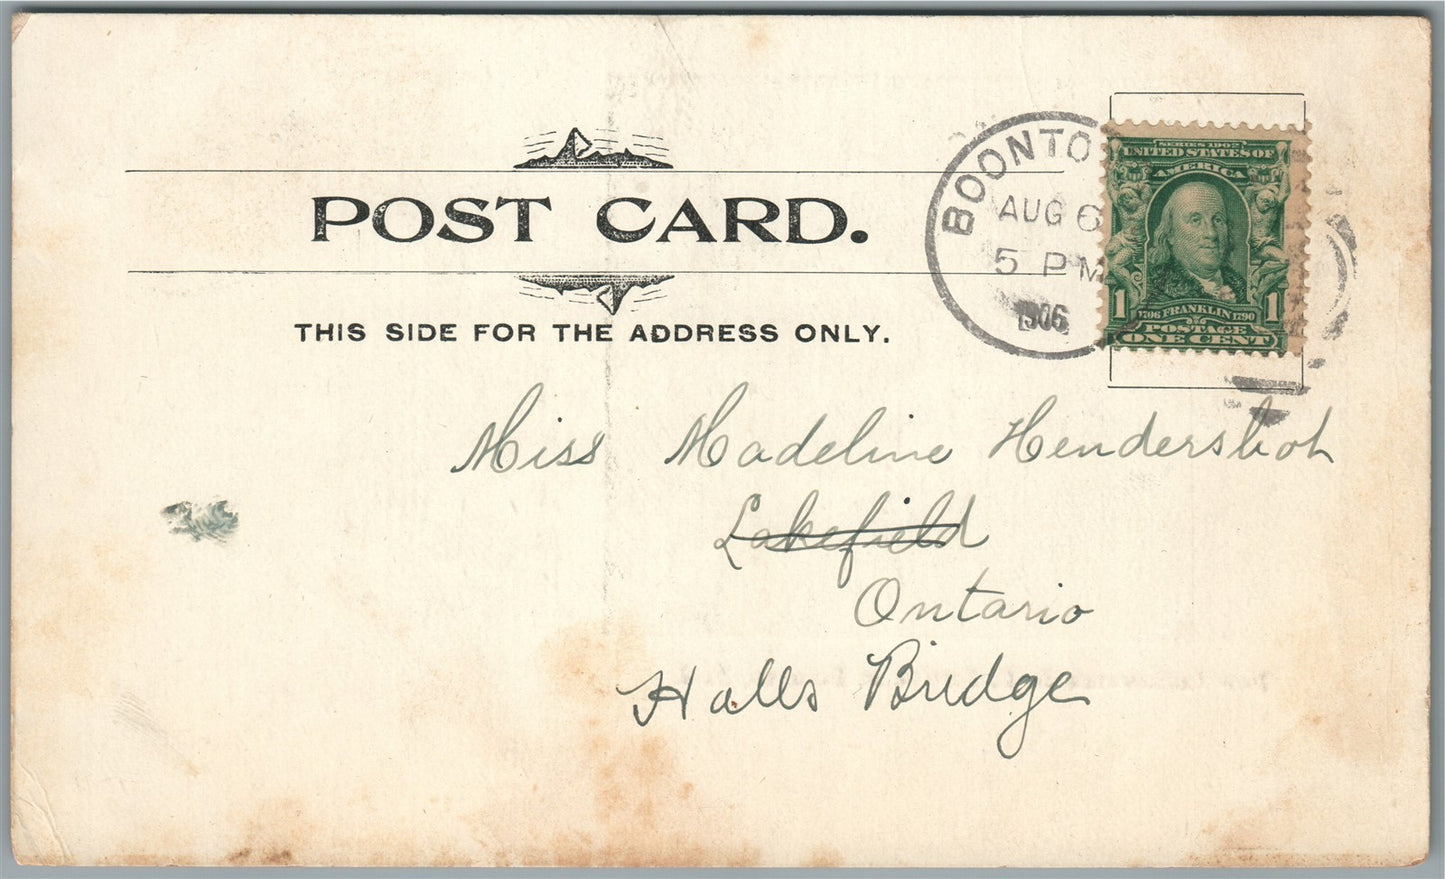 POST CARD.
THIS SIDE FOR THE ADDRESS ONLY.
BOONTO
AUG 6
5 PM
1906
SERIES 1902
UNITED STATES OF
AMERICA
1706 FRANKLIN 1790
1 1
POSTAGE
ONE CENT
Miss Madeline Hendershot
Lakefield
Ontario
Halls Bridge